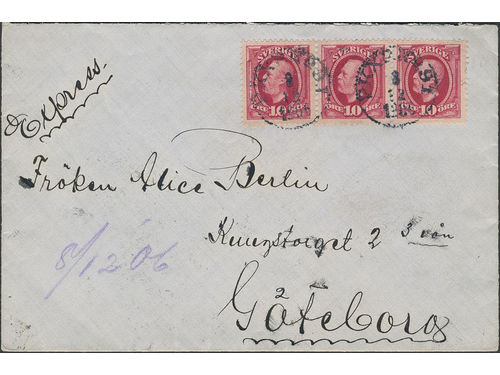 Express.
SVERIGE SVERIGE SVERIGE
10 ÖRE 10 ÖRE 10 ÖRE
Fröken Alice Berlin
Kungstorget 2 3 vån
8/12 06
Göteborg